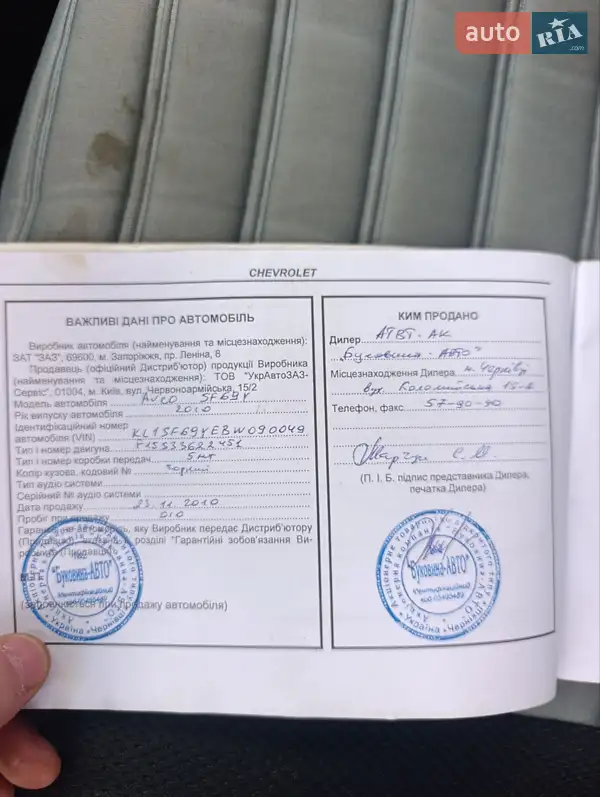 auto RIA .com
CHEVROLET
ВАЖЛИВІ ДАНІ ПРО АВТОМОБІЛЬ
Виробник автомобіля (найменування та місцезнаходження):
ЗАТ "ЗАЗ", 69600, м. Запоріжжя, пр. Леніна, 8
Продавець (офіційний Дистриб'ютор) продукції Виробника
(найменування та місцезнаходження): ТОВ "УкрАвтоЗАЗ-
Сервіс", 01004, м. Київ, вул. Червоноармійська, 15/2
Модель автомобіля AVEO SF69Y
Рік випуску автомобіля 2010
Ідентифікаційний номер
автомобіля (VIN) KL1SF69YEBW090049
Тип і номер двигуна F15S33622451
Тип і номер коробки передач 5мт
Колір кузова, кодовий № чорний
Тип аудіо системи
Серійний № аудіо системи
Дата продажу 23.11.2010
Пробіг при продажу 010
Гарантія на автомобіль, яку Виробник передає Дистриб'ютору
(Продавцю), вказана в розділі "Гарантійні зобов'язання Ви-
робника (Продавця)"
М.П.
(Заповнюється при продажу автомобіля)
"Буковина-АВТО"
Ідентифікаційний
код 03120489
Україна • Чернівці
КИМ ПРОДАНО
Дилер АТВТ-АК
"Буковина-АВТО"
Місцезнаходження Дилера м. Чернівці
вул. Коломийська 15-а
Телефон, факс 57-90-90
Марчук С.М.
(П. І. Б. підпис представника Дилера,
печатка Дилера)
"Буковина-АВТО"
Ідентифікаційний
код 03120489
Україна • Чернівці